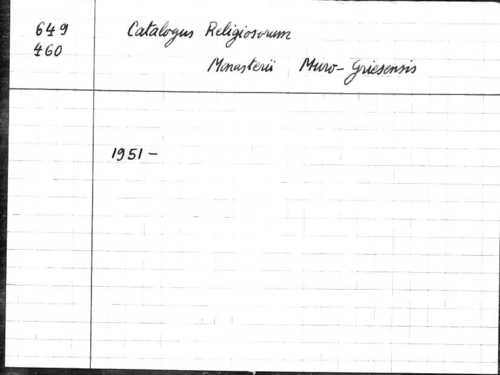 649 Catalogus Religiosorum
460 Monasterii Muro-Griesensis
1951 -